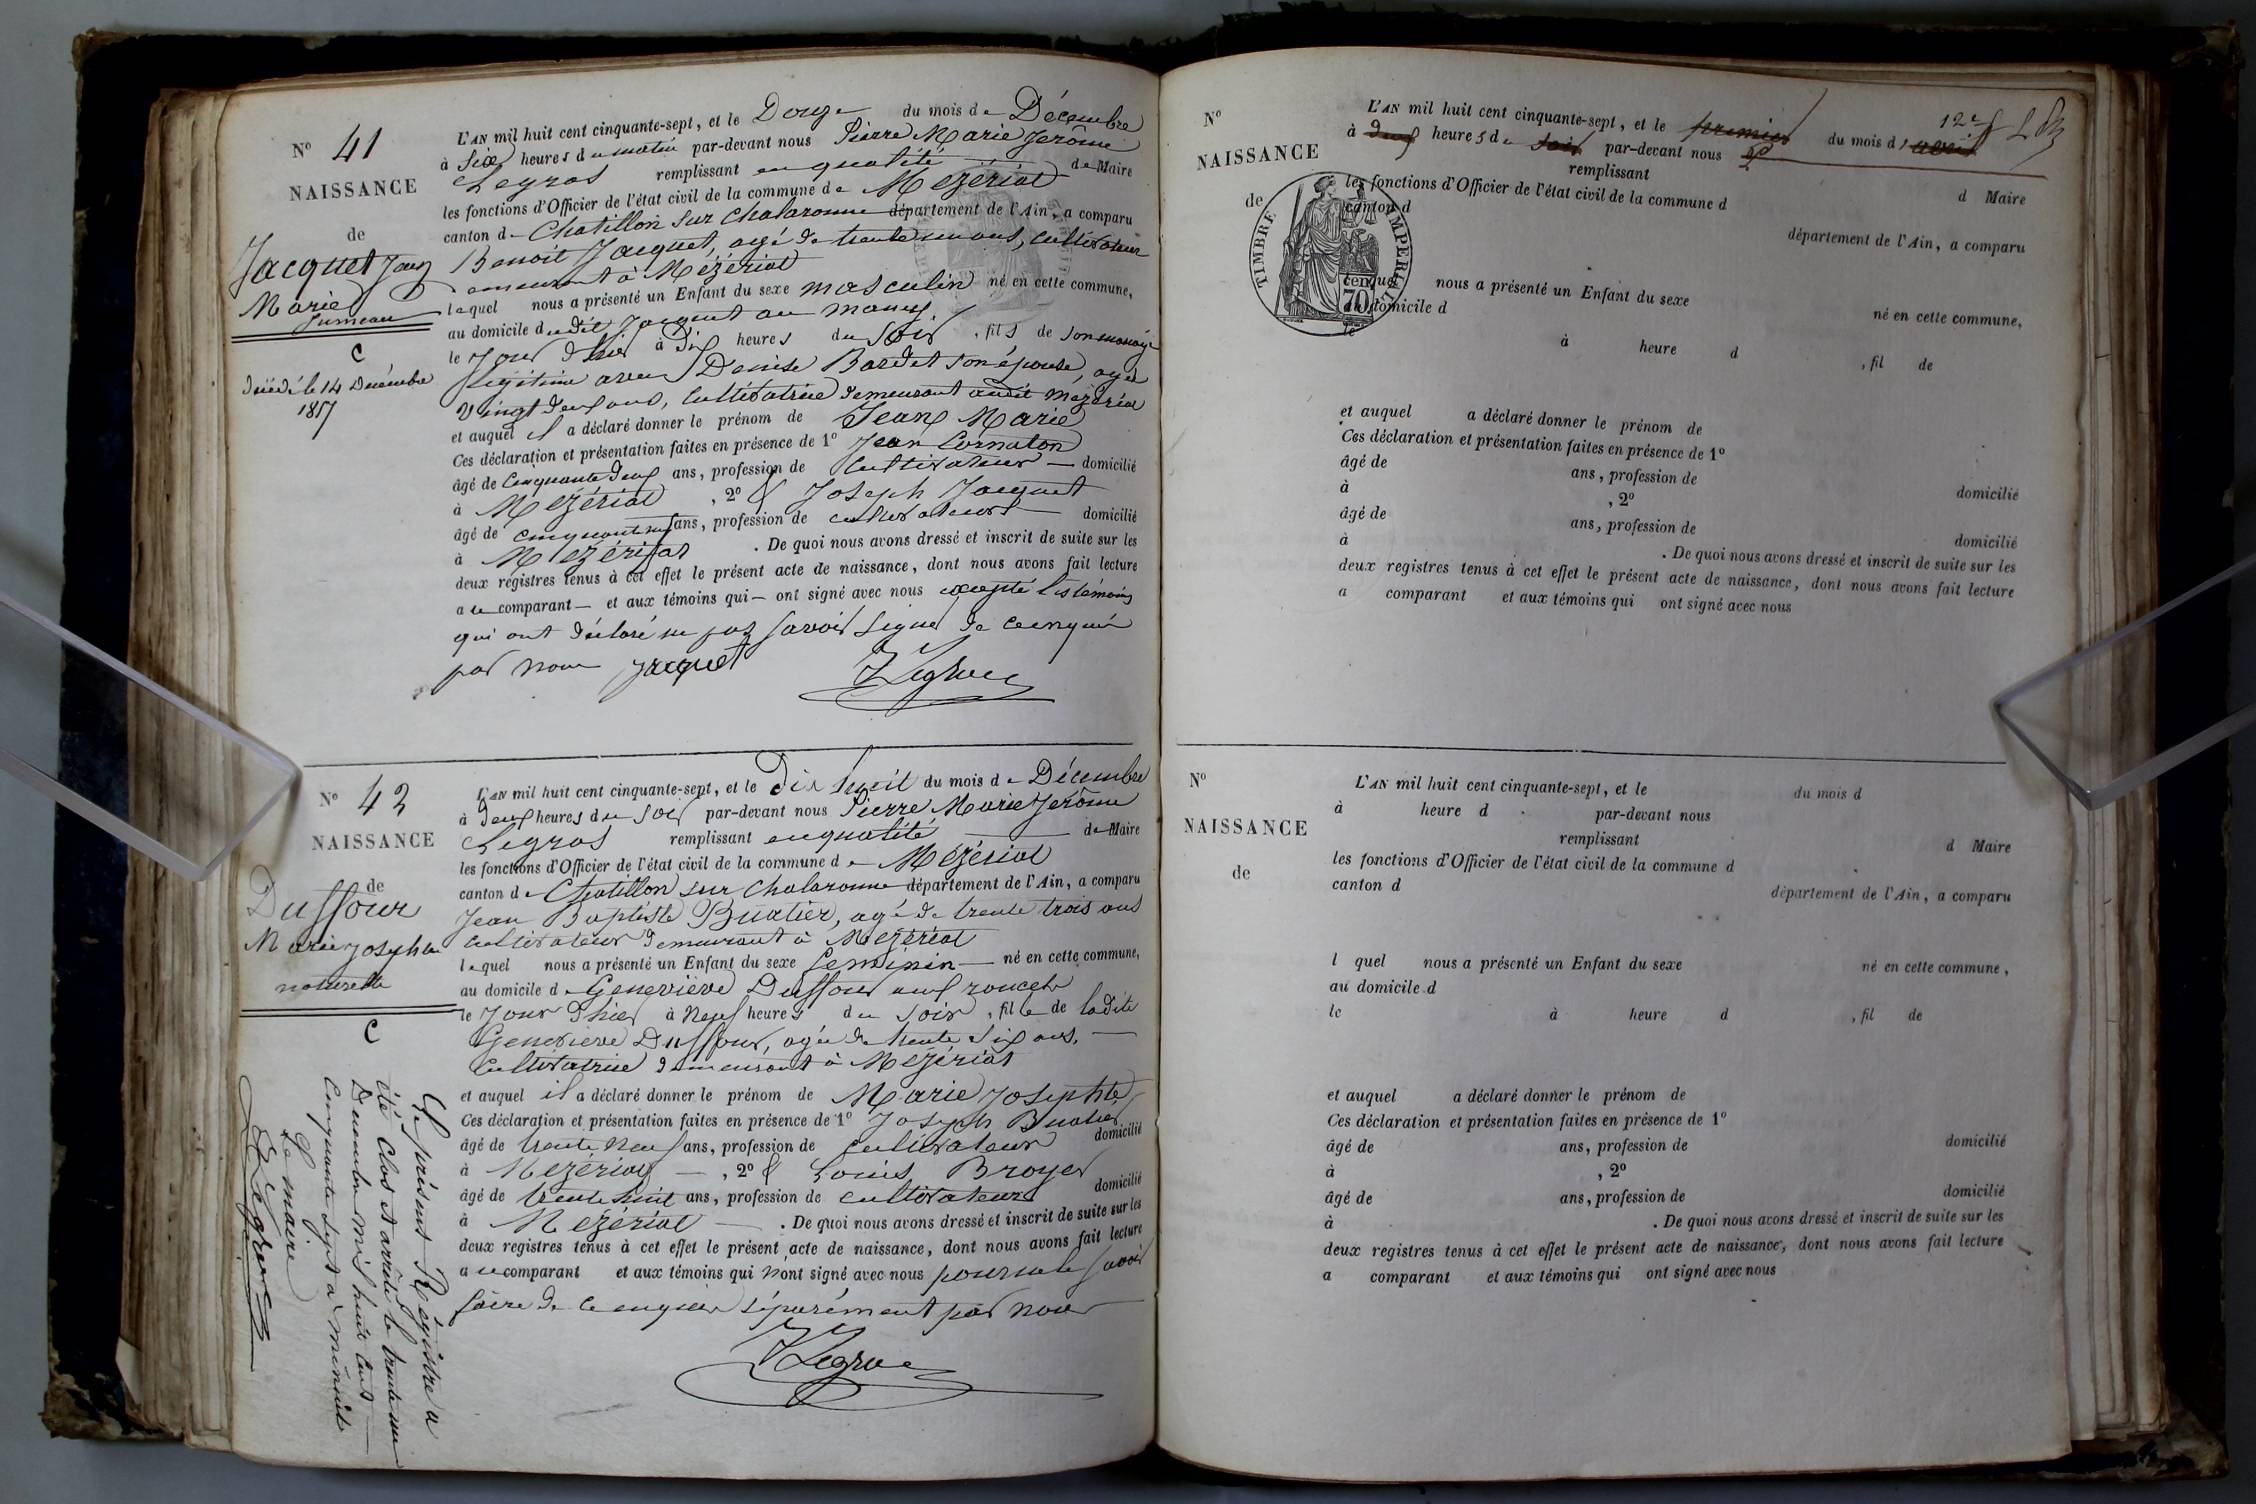 N° 41
NAISSANCE
de
Jacquet Jean
Marie
Jumeau
C
Décédé le 14 Décembre
1857
L'AN mil huit cent cinquante-sept, et le Douze du mois de Décembre
à Six heures du matin par-devant nous Pierre Marie Jerôme
Legros remplissant en qualité de Maire
les fonctions d'Officier de l'état civil de la commune de Mézériat
canton de Chatillon sur Chalaronne département de l'Ain, a comparu
Benoit Jacquet, agé de trente un ans, cultivateur
demeurant à Mézériat
lequel nous a présenté un Enfant du sexe masculin né en cette commune,
au domicile dudit Jacquet au
le Jour d'hier à Dix heures du Soir, fils de son mariage
légitime avec Denise Bardet son épouse, agée
Vingt deux ans, Cultivatrice demeurant audit Mézériat
et auquel il a déclaré donner le prénom de Jean Marie
Ces déclaration et présentation faites en présence de 1° Jean Cornaton
âgé de Cinquante deux ans, profession de Cultivateur domicilié
à Mézériat, 2° & Joseph Jacquet
âgé de ans, profession de cultivateur domicilié
à Mézériat. De quoi nous avons dressé et inscrit de suite sur les
deux registres tenus à cet effet le présent acte de naissance, dont nous avons fait lecture
a ce comparant et aux témoins qui ont signé avec nous excepté les témoins
qui ont déclaré ne pas savoir signer de ce enquis
par nous Jacquet Legros
N° 42
NAISSANCE
de
Duffour
Marie Josephte
naturelle
C
Le présent Registre a
été Clos et arrêté le trente un
Décembre mil huit cent
Cinquante Sept a minuit
Le maire
Legros
L'AN mil huit cent cinquante-sept, et le Dix huit du mois de Décembre
à deux heures du Soir par-devant nous Pierre Marie Jerôme
Legros remplissant en qualité de Maire
les fonctions d'Officier de l'état civil de la commune de Mézériat
canton de Chatillon sur Chalaronne département de l'Ain, a comparu
Jean Baptiste Buatier, agé de trente trois ans
cultivateur demeurant à Mézériat
lequel nous a présenté un Enfant du sexe feminin né en cette commune,
au domicile de Geneviève Duffour
le Jour d'hier à Neuf heures du Soir, fille de ladite
Geneviève Duffour, agée de trente Six ans,
Cultivatrice demeurant à Mézériat
et auquel il a déclaré donner le prénom de Marie Josephte
Ces déclaration et présentation faites en présence de 1° Joseph Buatier
âgé de trente Neuf ans, profession de Cultivateur domicilié
à Mézériat, 2° & Louis Broyer
âgé de trente huit ans, profession de cultivateur domicilié
à Mézériat. De quoi nous avons dressé et inscrit de suite sur les
deux registres tenus à cet effet le présent acte de naissance, dont nous avons fait lecture
a ce comparant et aux témoins qui n'ont signé avec nous pour ne le savoir
faire de ce enquis séparément par nous
Legros
N°
NAISSANCE
de
TIMBRE IMPERIAL
70
L'AN mil huit cent cinquante-sept, et le premier du mois d'avril
12e
à deux heures du soir par-devant nous
remplissant d Maire
les fonctions d'Officier de l'état civil de la commune d
canton d département de l'Ain, a comparu
lequel nous a présenté un Enfant du sexe né en cette commune,
au domicile d
le à heure d , fil de
et auquel a déclaré donner le prénom de
Ces déclaration et présentation faites en présence de 1°
âgé de ans, profession de domicilié
à , 2°
âgé de ans, profession de domicilié
à . De quoi nous avons dressé et inscrit de suite sur les
deux registres tenus à cet effet le présent acte de naissance, dont nous avons fait lecture
a comparant et aux témoins qui ont signé avec nous
N°
NAISSANCE
de
L'AN mil huit cent cinquante-sept, et le du mois d
à heure d par-devant nous
remplissant d Maire
les fonctions d'Officier de l'état civil de la commune d
canton d département de l'Ain, a comparu
l quel nous a présenté un Enfant du sexe né en cette commune,
au domicile d
le à heure d , fil de
et auquel a déclaré donner le prénom de
Ces déclaration et présentation faites en présence de 1°
âgé de ans, profession de domicilié
à , 2°
âgé de ans, profession de domicilié
à . De quoi nous avons dressé et inscrit de suite sur les
deux registres tenus à cet effet le présent acte de naissance, dont nous avons fait lecture
a comparant et aux témoins qui ont signé avec nous